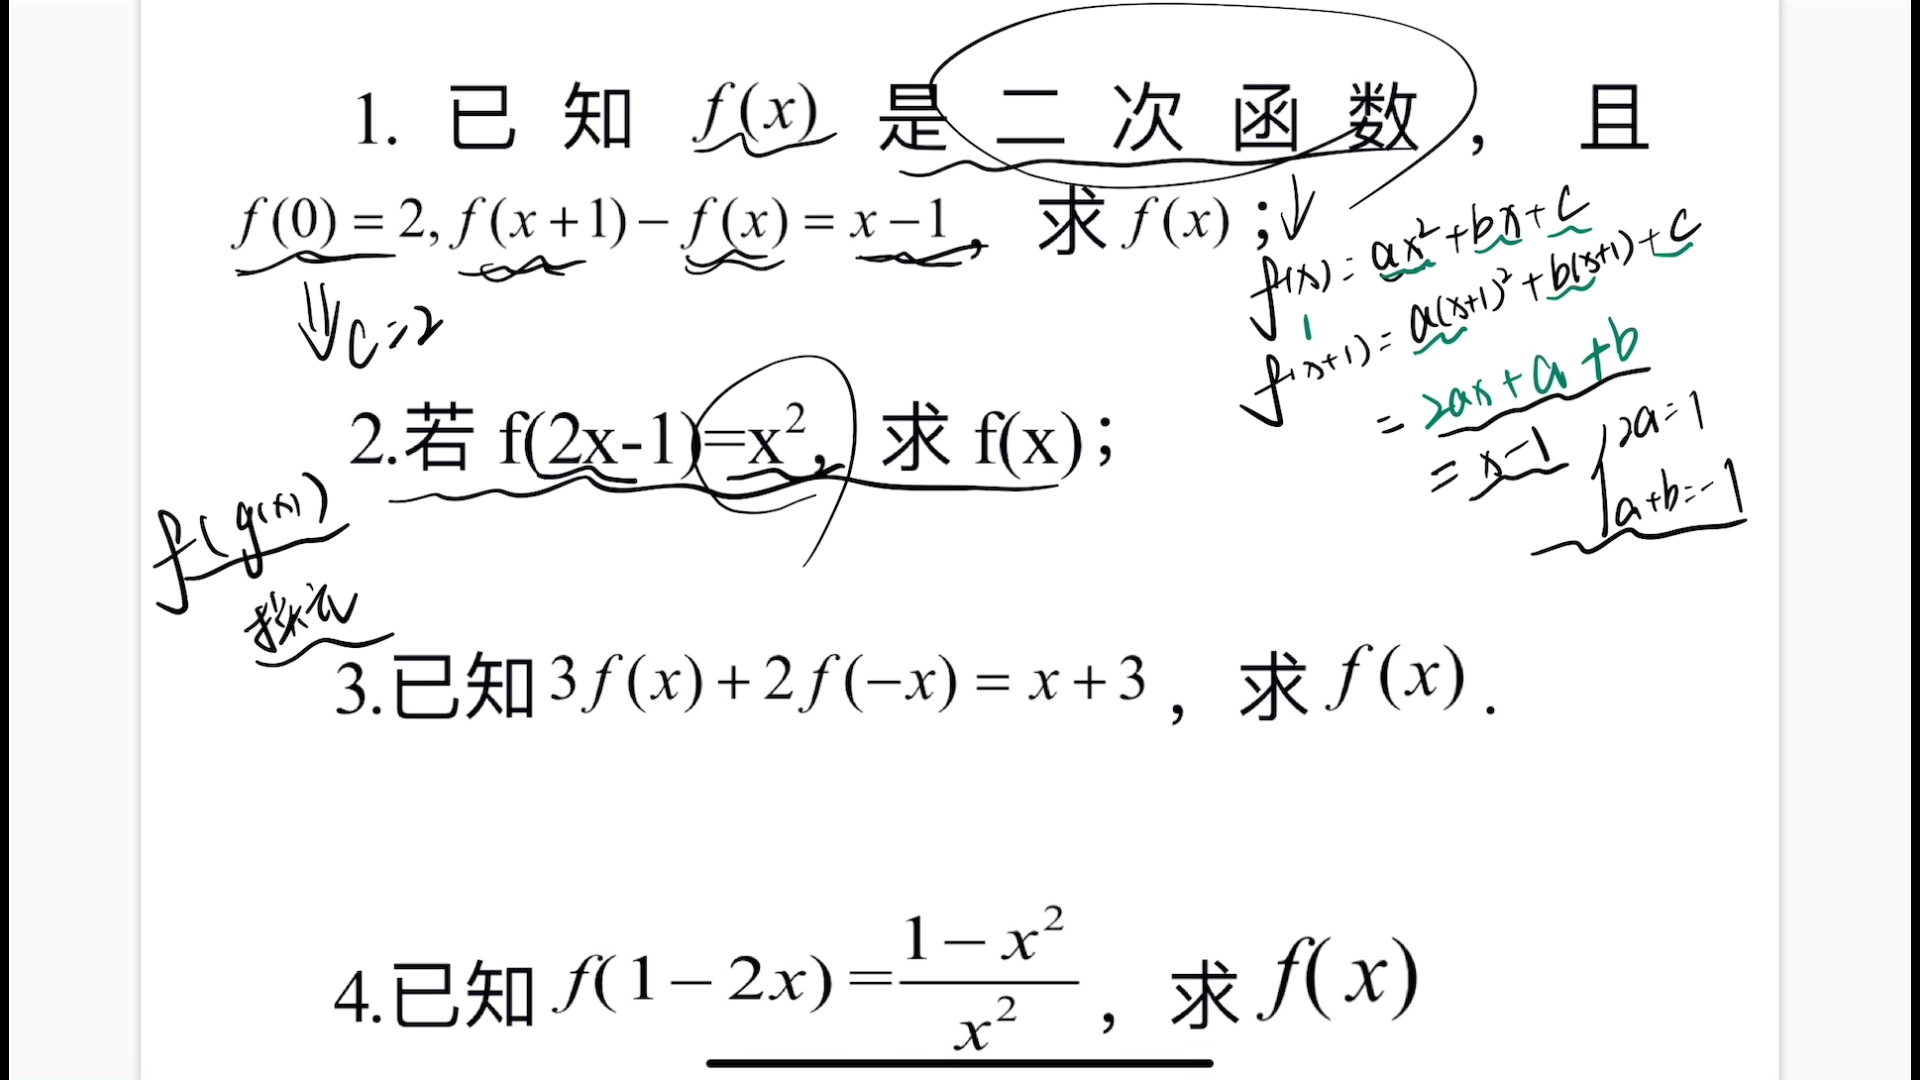 1. 已知 f(x) 是二次函数，且
f(0) = 2, f(x+1) − f(x) = x − 1， 求 f(x)；
f(x) = ax²+bx+c
f(x+1) = a(x+1)²+b(x+1)+c
C=2
= 2ax+a+b
= x-1
2a=1
a+b=-1
2.若 f(2x-1)=x²，求 f(x)；
f(g(x))
3.已知 3f(x)+2f(−x) = x+3，求 f(x).
4.已知 f(1−2x) = \frac{1−x²}{x²}，求 f(x)